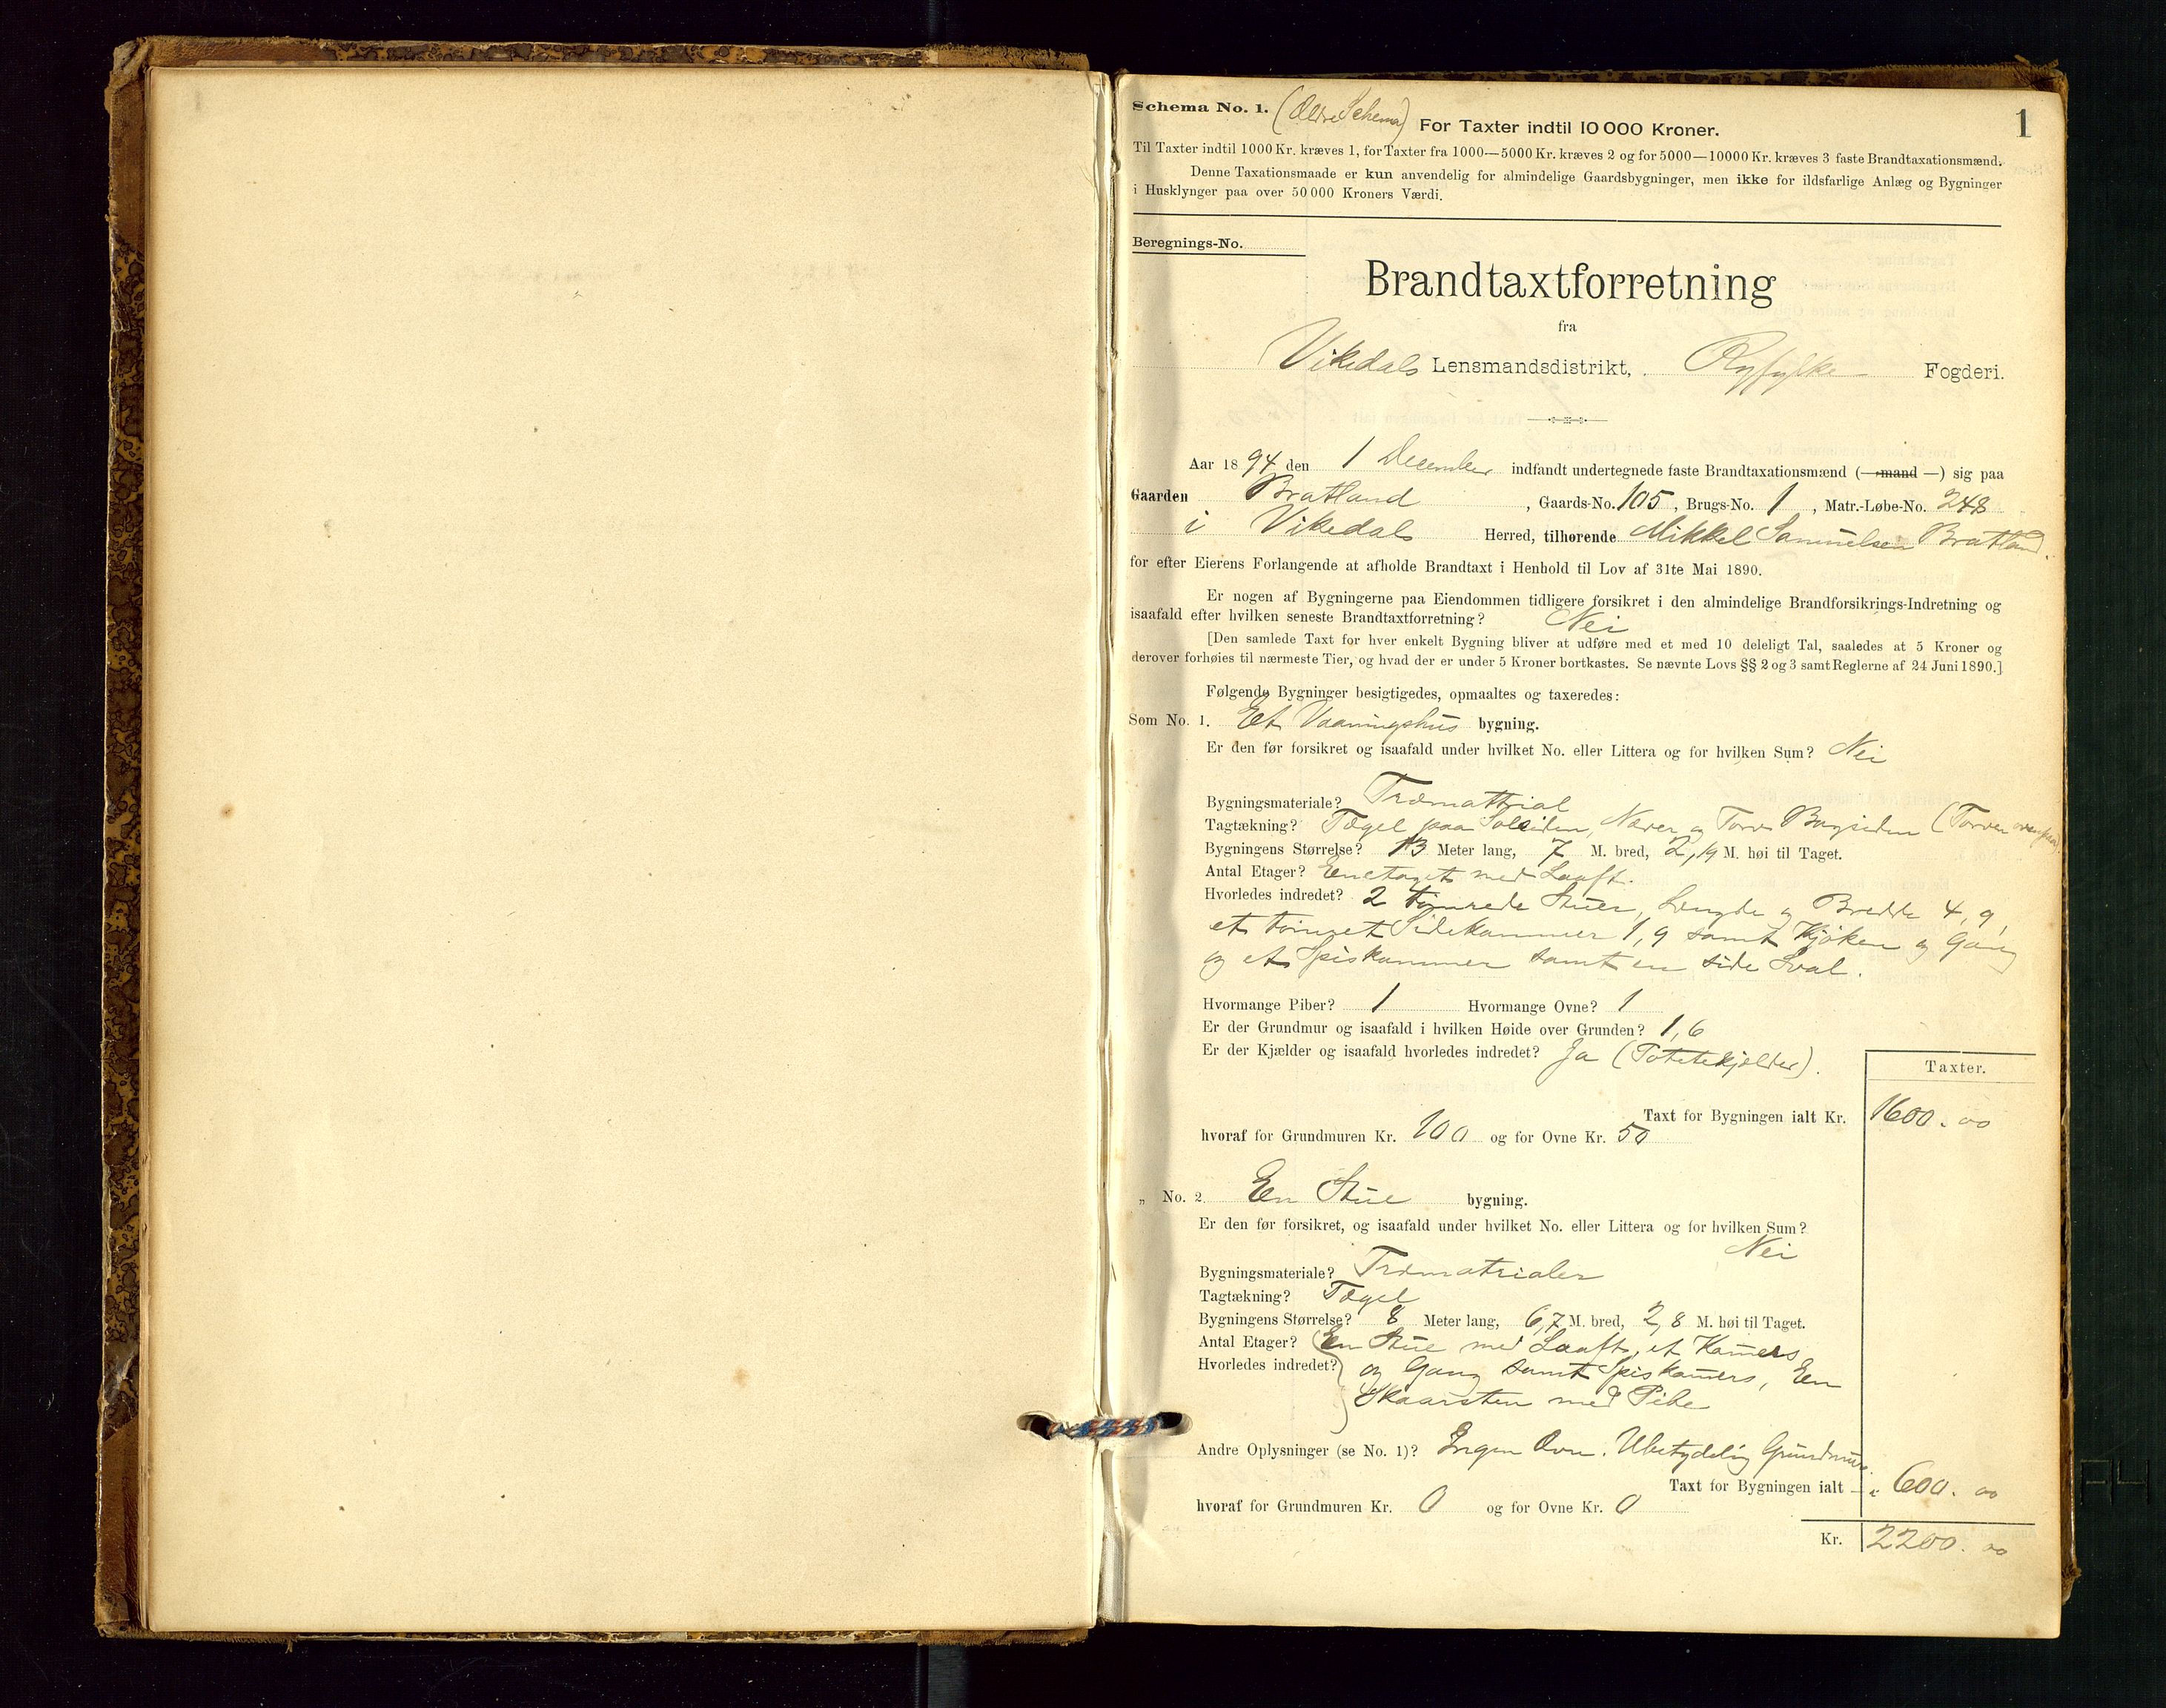 1
Schema No. 1. (Ældre Schema) For Taxter indtil 10 000 Kroner.
Til Taxter indtil 1000 Kr. kræves 1, for Taxter fra 1000—5000 Kr. kræves 2 og for 5000—10000 Kr. kræves 3 faste Brandtaxationsmænd.
Denne Taxationsmaade er kun anvendelig for almindelige Gaardsbygninger, men ikke for ildsfarlige Anlæg og Bygninger
i Husklynger paa over 50 000 Kroners Værdi.
Beregnings-No.
Brandtaxtforretning
fra
Vikedals Lensmandsdistrikt, Ryfylke Fogderi.
Aar 1894 den 1 December indfandt undertegnede faste Brandtaxationsmænd (— mand —) sig paa
Gaarden Bratland, Gaards-No. 105, Brugs-No. 1, Matr.-Løbe-No. 248
i Vikedals Herred, tilhørende Mikkel Samuelsen Bratland.
for efter Eierens Forlangende at afholde Brandtaxt i Henhold til Lov af 31te Mai 1890.
Er nogen af Bygningerne paa Eiendommen tidligere forsikret i den almindelige Brandforsikrings-Indretning og
isaafald efter hvilken seneste Brandtaxtforretning? Nei
[Den samlede Taxt for hver enkelt Bygning bliver at udføre med et med 10 deleligt Tal, saaledes at 5 Kroner og
derover forhøies til nærmeste Tier, og hvad der er under 5 Kroner bortkastes. Se nævnte Lovs §§ 2 og 3 samt Reglerne af 24 Juni 1890.]
Følgende Bygninger besigtigedes, opmaaltes og taxeredes:
Som No. 1. Et Vaaningshus bygning.
Er den før forsikret og isaafald under hvilket No. eller Littera og for hvilken Sum? Nei
Bygningsmateriale? Træmattrial
Tagtækning? Tægel paa Solsiden, Næver og Torv Bagsiden (Torven ovenpaa).
Bygningens Størrelse? 13 Meter lang, 7 M. bred, 2,19 M. høi til Taget.
Antal Etager? Enetaget med Laaft.
Hvorledes indredet? 2 tømrede Stuer, Længde og Bredde 4,9,
et tømret Sidekammer 1,9 samt Kjøken og Gang
og et Spiskammer samt en side Sval.
Hvormange Piber? 1 Hvormange Ovne? 1
Er der Grundmur og isaafald i hvilken Høide over Grunden? 1,6
Er der Kjælder og isaafald hvorledes indredet? Ja (Potetekjelder).
Taxter.
Taxt for Bygningen ialt Kr. 1600. 00
hvoraf for Grundmuren Kr. 100 og for Ovne Kr. 50
„ No. 2. En Stue bygning.
Er den før forsikret, og isaafald under hvilket No. eller Littera og for hvilken Sum?
Nei
Bygningsmateriale? Træmatrialer
Tagtækning? Tægel
Bygningens Størrelse? 8 Meter lang, 6,7 M. bred, 2,8 M. høi til Taget.
Antal Etager? En Stue med Laaft, et Kamers
Hvorledes indredet? og Gang samt Spiskamers, En
Skaarsten med Pibe
Andre Oplysninger (se No. 1)? Ingen Ovn. Ubetydelig Grundmur.
Taxt for Bygningen ialt — " 600. 00
hvoraf for Grundmuren Kr. 0 og for Ovne Kr. 0
Kr. 2200. 00